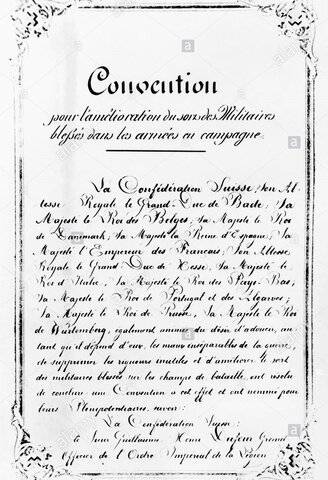 Convention
pour l'amélioration du sort des Militaires
blessés dans les armées en campagne.
La Confédération Suisse; Son Al-
tesse Royale le Grand-Duc de Bade; Sa
Majesté le Roi des Belges; Sa Majesté le Roi
de Danemark; Sa Majesté la Reine d'Espagne; Sa
Majesté l'Empereur des Français; Son Altesse
Royale le Grand-Duc de Hesse; Sa Majesté le
Roi d'Italie; Sa Majesté le Roi des Pays-Bas;
Sa Majesté le Roi de Portugal et des Algarves;
Sa Majesté le Roi de Prusse; Sa Majesté le Roi
de Würtemberg, également animés du désir d'adoucir, au-
tant qu'il dépend d'eux, les maux inséparables de la guerre,
de supprimer les rigueurs inutiles et d'améliorer le sort
des militaires blessés sur les champs de bataille, ont résolu
de conclure une Convention à cet effet et ont nommé pour
leurs Plénipotentiaires, savoir:
La Confédération Suisse:
le Sieur Guillaume Henri Dufour Grand
Officier de l'Ordre Impérial de la Légion